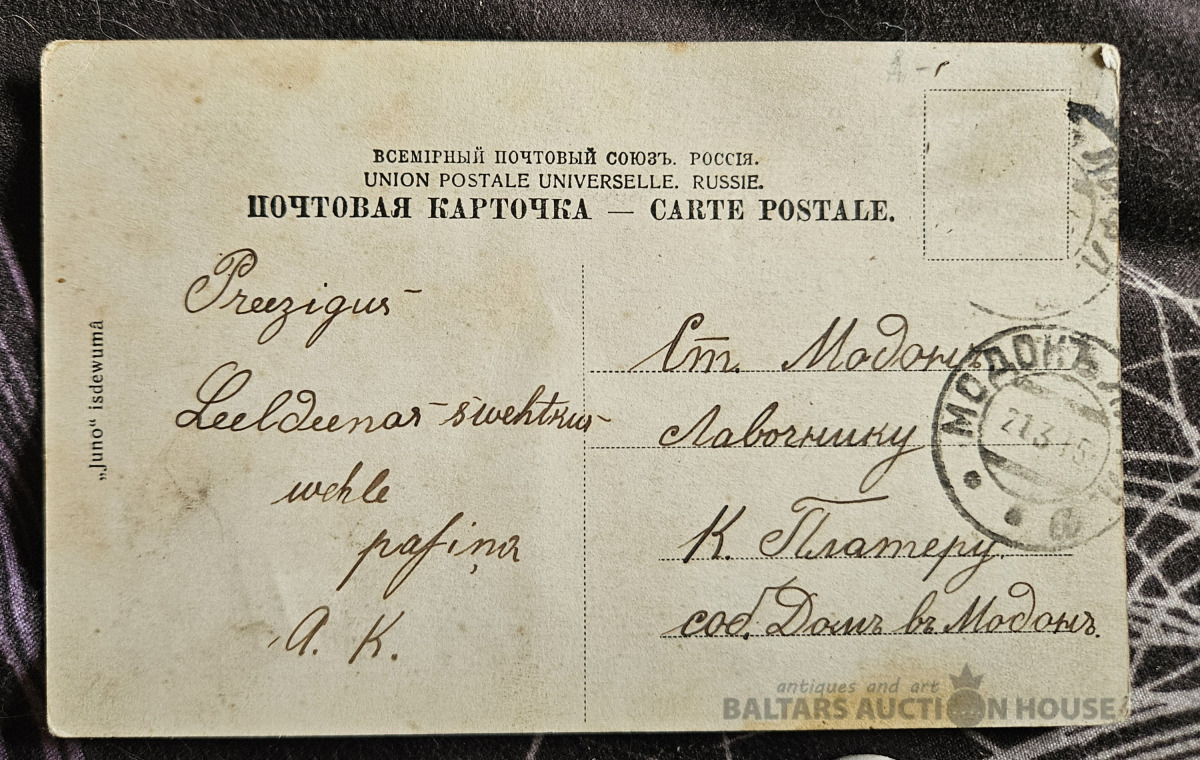 ВСЕМІРНЫЙ ПОЧТОВЫЙ СОЮЗЪ. РОССІЯ.
UNION POSTALE UNIVERSELLE. RUSSIE.
ПОЧТОВАЯ КАРТОЧКА — CARTE POSTALE.
„Juno“ isdewumâ
Preezigus
Leeldeenas swehtkus
wehle
pasiņa
A. K.
Ст. Модонъ
Лавочнику
К. Платеру
соб. Домъ въ Модонъ.
МОДОНЪ
21.3.15
antiques and art
BALTARS AUCTION HOUSE